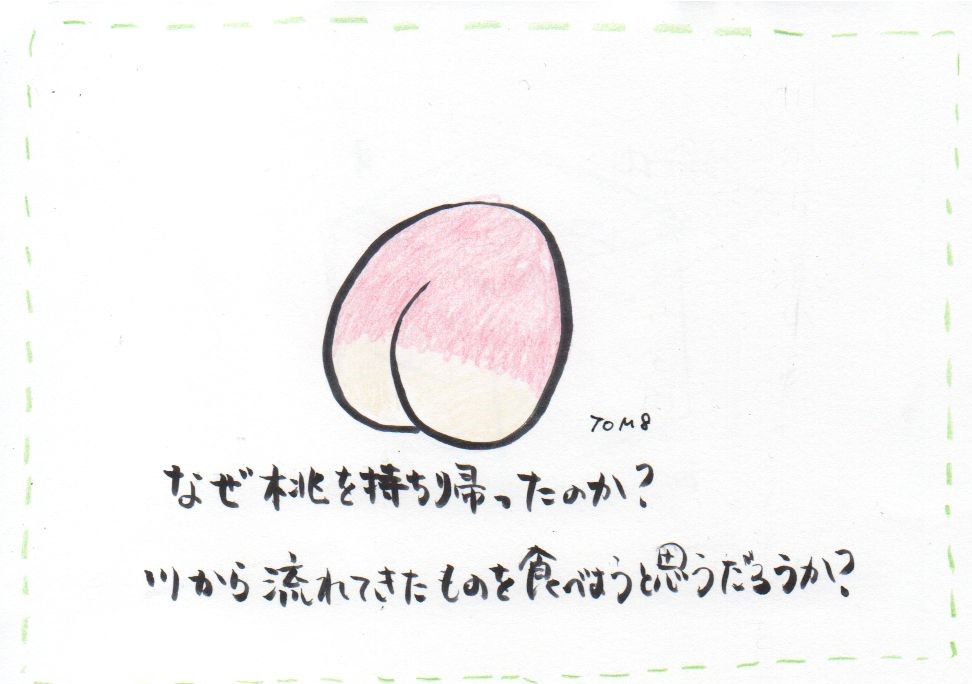 TOM8
なぜ桃を持ち帰ったのか?
川から流れてきたものを食べようと思うだろうか?